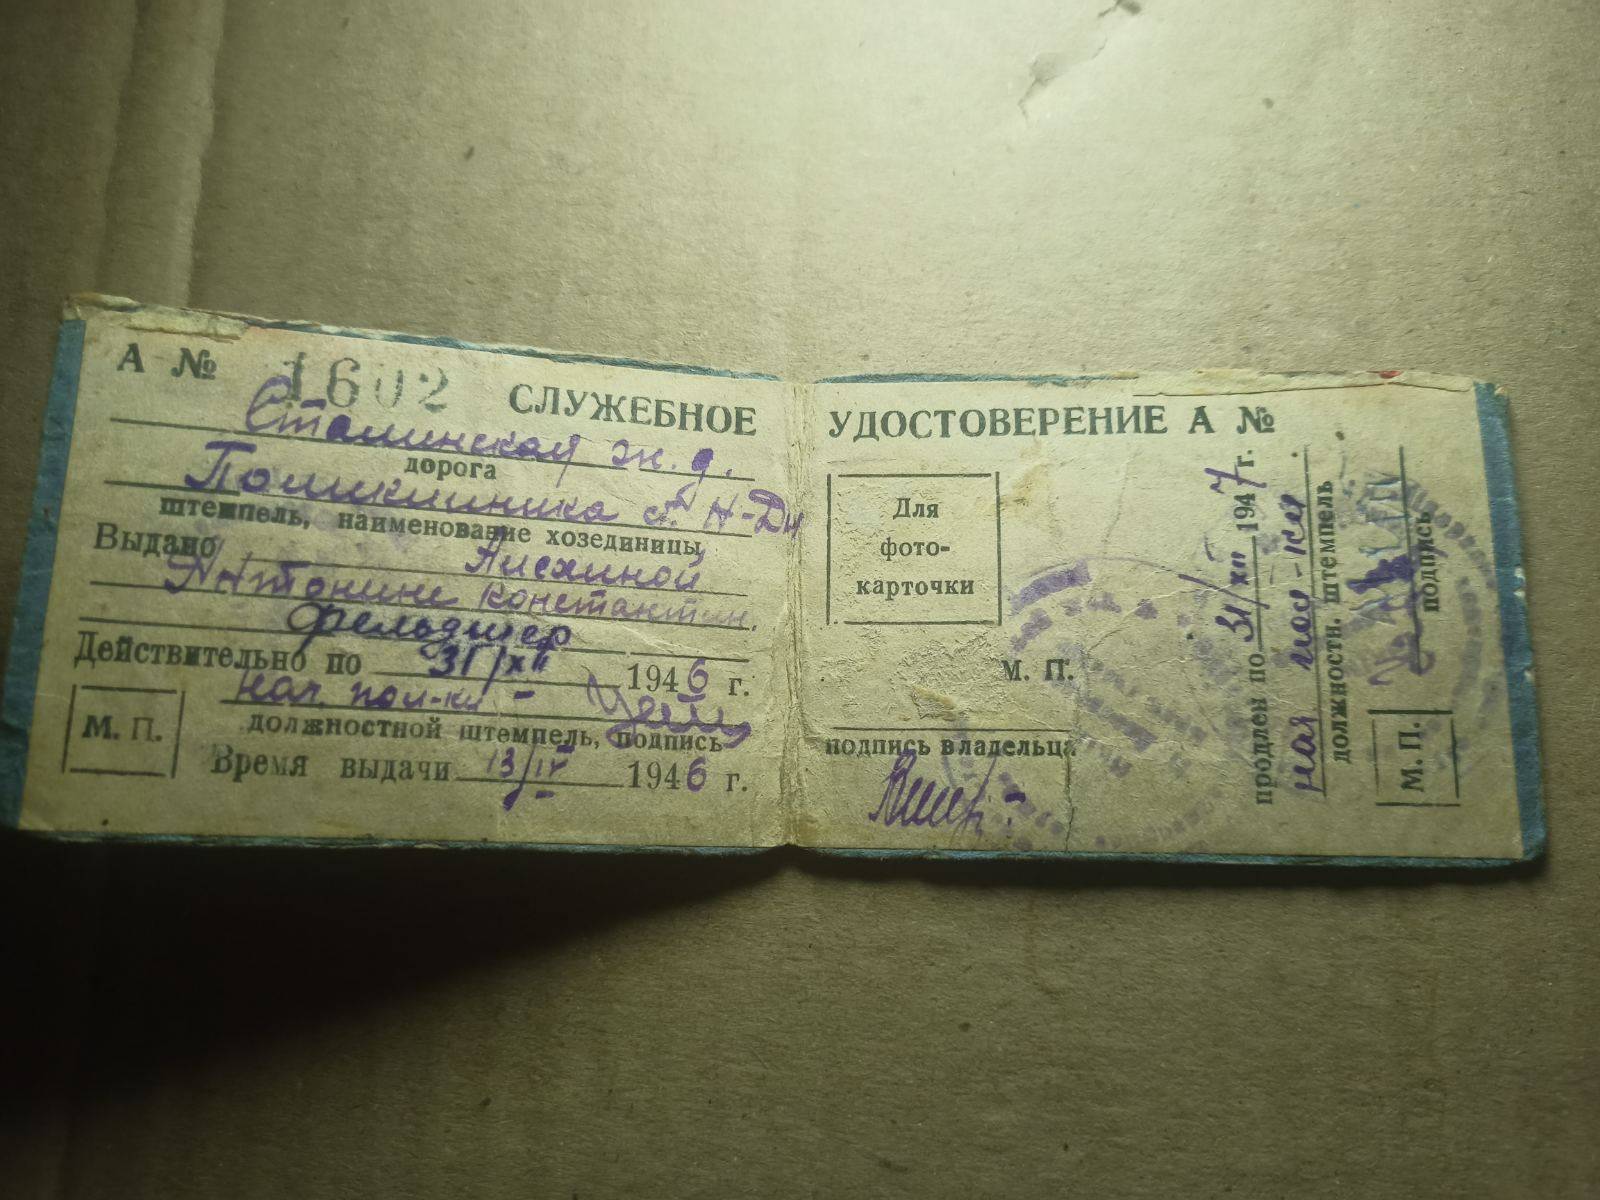 А № 1602 СЛУЖЕБНОЕ
Сталинская ж. д.
дорога
Поликлиника ст. Н-Дн
штемпель, наименование хозединицы
Выдано
Антонине Константин.
фельдшер
Действительно по 31/XII 1946 г.
нач. пол-ки -
должностной штемпель, подпись
М. П.
Время выдачи 13/IV 1946 г.
УДОСТОВЕРЕНИЕ А №
Для
фото-
карточки
М. П.
подпись владельца
продлен по 31/XII 1947 г.
нач пол-ки
должностн. штемпель
подпись
М. П.